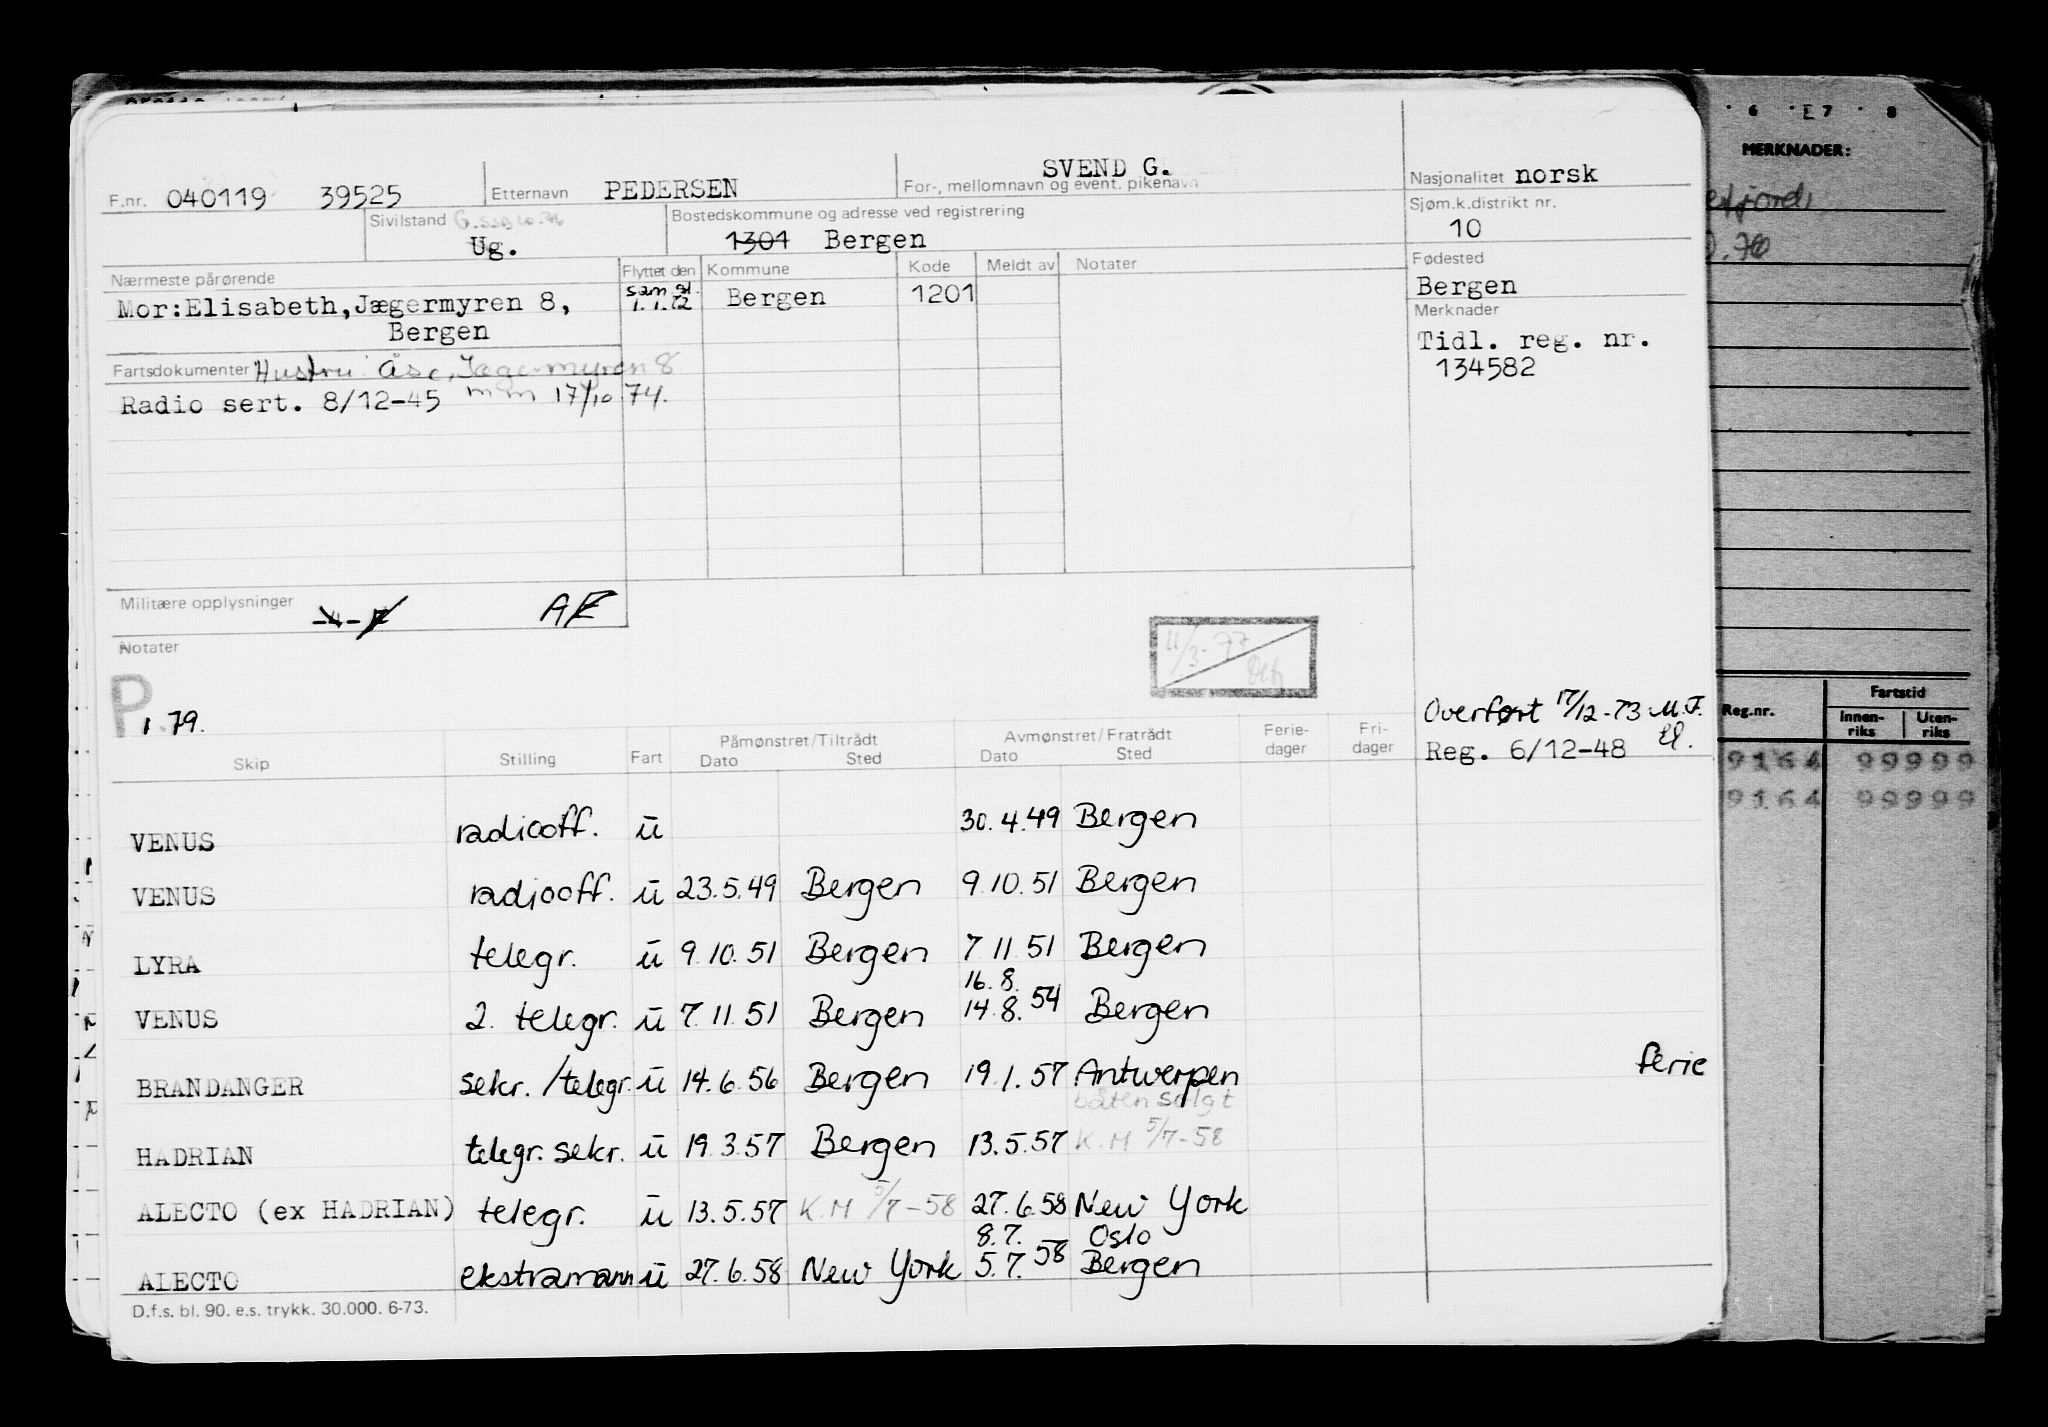 F.nr. 040119 39525 Etternavn PEDERSEN SVEND G. For-, mellomnavn og event. pikenavn Nasjonalitet norsk
Sivilstand Ug. Bostedskommune og adresse ved registrering 1301 Bergen Sjøm.k.distrikt nr. 10
Nærmeste pårørende Flyttet den Kommune Kode Meldt av Notater Fødested
Mor:Elisabeth,Jægermyren 8, sam.sl. 1.1.72 Bergen 1201 Bergen
Bergen Merknader
Fartsdokumenter Hustru Åse, Jægermyren 8 Tidl. reg. nr.
Radio sert. 8/12-45 mm 17/10 74. 134582
Militære opplysninger
Notater
P 1.79. 11/3-77
Overført 17/12-73 M.F.
Reg. 6/12-48 El.
Skip Stilling Fart Påmønstret/Tiltrådt Dato Sted Avmønstret/Fratrådt Dato Sted Ferie-dager Fri-dager
VENUS radiooff. u 30.4.49 Bergen
VENUS radiooff. u 23.5.49 Bergen 9.10.51 Bergen
LYRA telegr. u 9.10.51 Bergen 7 11 51 Bergen
16.8.
VENUS 2. telegr. u 7.11.51 Bergen 14.8.54 Bergen
BRANDANGER sekr./telegr. u 14.6.56 Bergen 19.1.57 Antwerpen ferie
båten solgt
HADRIAN telegr. sekr. u 19.3.57 Bergen 13.5.57 K.M 5/7-58
ALECTO (ex HADRIAN) telegr. u 13.5.57 K.M 5/7-58 27.6.58 New York
8.7. Oslo
ALECTO ekstramann u 27.6.58 New York 5.7.58 Bergen
D.f.s. bl. 90. e.s. trykk. 30.000. 6-73.
6 7 8
MERKNADER:
Reg.nr. Fartstid
Innen-riks Uten-riks
9164 99999
9164 99999